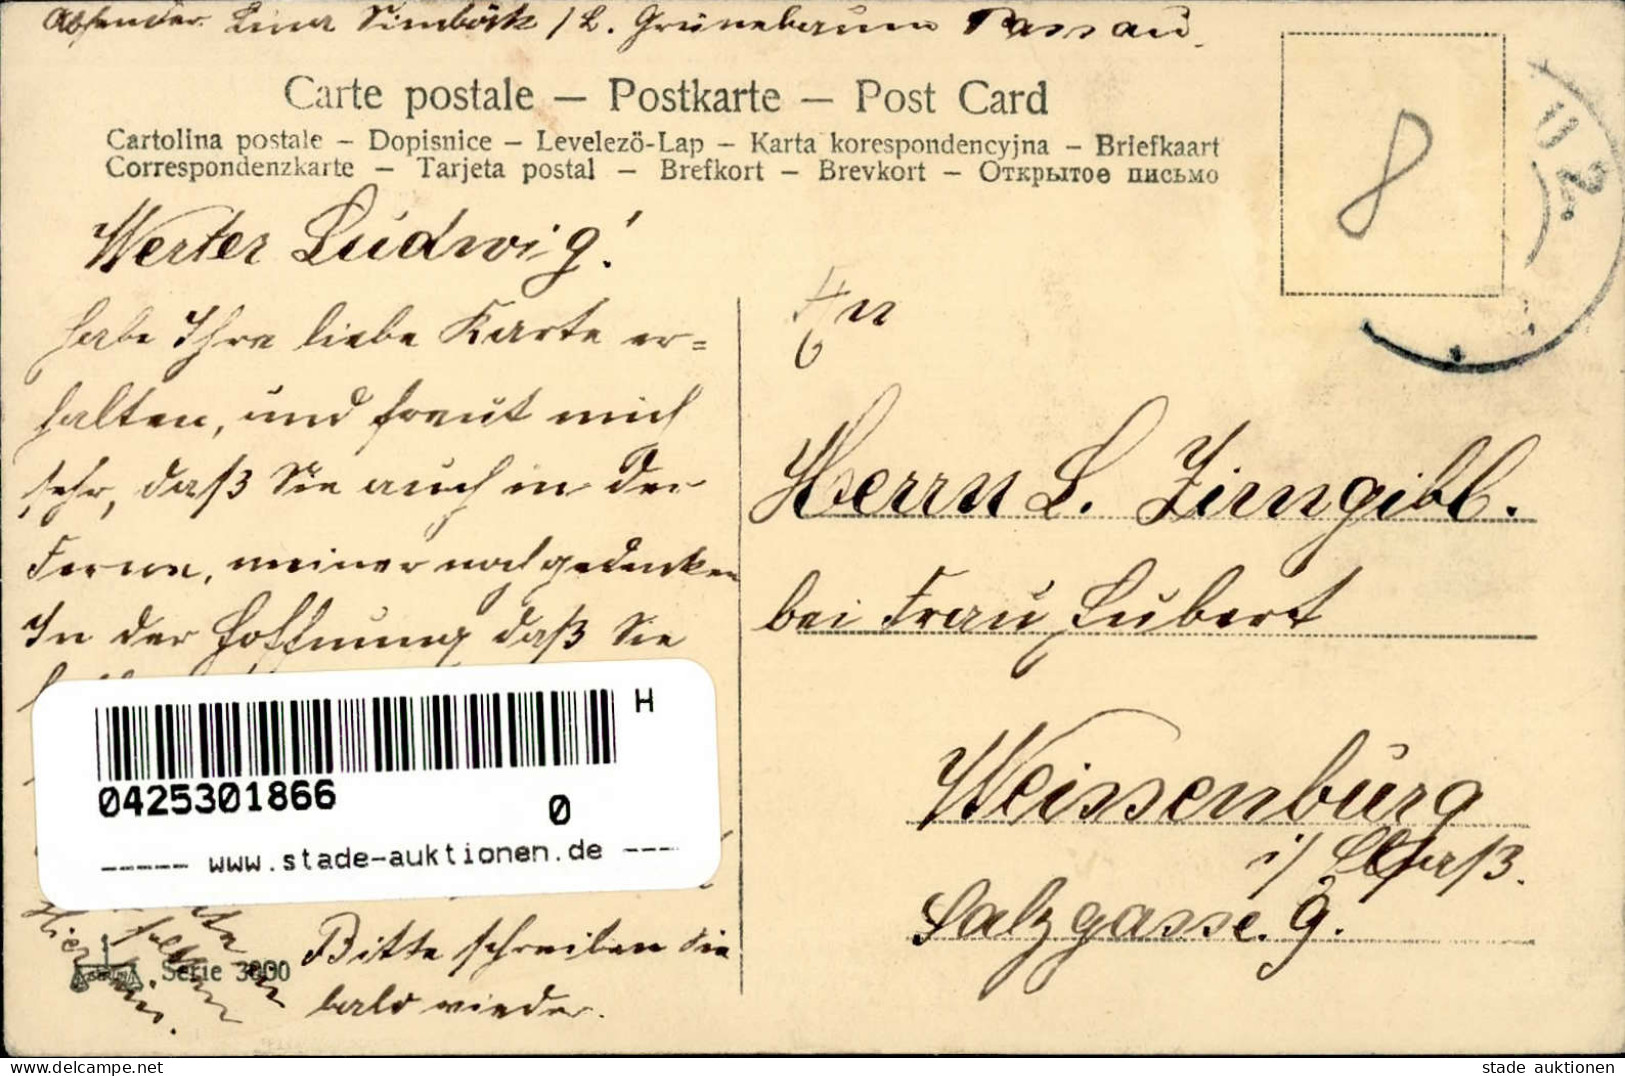 Absender Lina Simböck / L. Grünebaum Passau.
Carte postale – Postkarte – Post Card
Cartolina postale – Dopisnice – Levelezö-Lap – Karta korespondencyjna – Briefkaart
Correspondenzkarte – Tarjeta postal – Brefkort – Brevkort – Открытое письмо
8
11 2.
Werter Ludwig!
habe Ihre liebe Karte er=
halten, und freut mich
sehr, daß Sie auch in der
Ferne, meiner noch gedenken
In der Hoffnung daß Sie
An
Herrn L. Zirngibl.
bei Frau Hubert
Weissenburg
i/ Elsaß.
Salzgasse. 9.
H
0425301866
0
----- www.stade-auktionen.de ---
Bitte schreiben Sie
bald wieder.
Serie 3000
stade auktionen